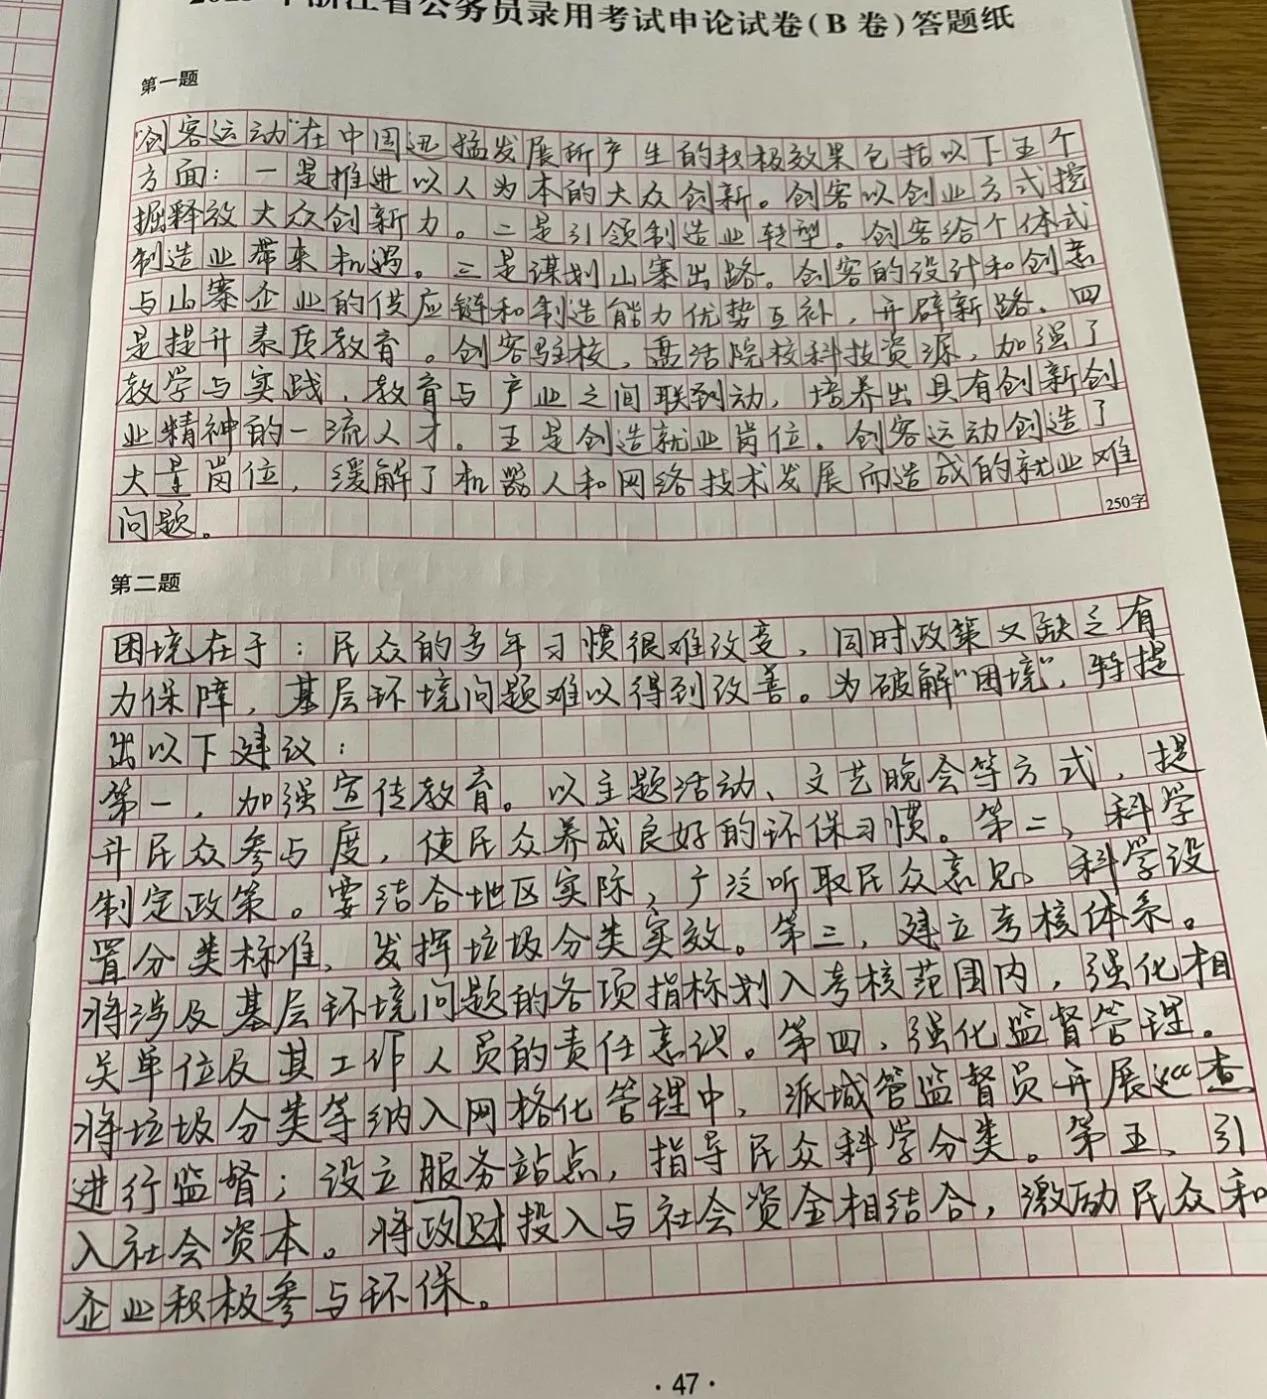 江省公务员录用考试申论试卷(B 卷)答题纸
第一题
“创客运动”在中国迅猛发展所产生的积极效果包括以下五个
方面：一是推进以人为本的大众创新。创客以创业方式挖
掘释放大众创新力。二是引领制造业转型。创客给个体式
制造业带来机遇。三是谋划山寨出路。创客的设计和创意
与山寨企业的供应链和制造能力优势互补，开辟新路。四
是提升素质教育。创客驻校，盘活院校科技资源，加强了
教学与实践，教育与产业之间联到动，培养出具有创新创
业精神的一流人才。五是创造就业岗位。创客运动创造了
大量岗位，缓解了机器人和网络技术发展而造成的就业难
问题。
250字
第二题
困境在于：民众的多年习惯很难改变，同时政策又缺乏有
力保障，基层环境问题难以得到改善。为破解“困境”，特提
出以下建议：
第一，加强宣传教育。以主题活动、文艺晚会等方式，提
升民众参与度，使民众养成良好的环保习惯。第二、科学
制定政策。要结合地区实际，广泛听取民众意见、科学设
置分类标准，发挥垃圾分类实效。第三，建立考核体系。
将涉及基层环境问题的各项指标划入考核范围内，强化相
关单位及其工作人员的责任意识。第四、强化监督管理。
将垃圾分类等纳入网格化管理中，派城管监督员开展巡查
进行监督；设立服务站点，指导民众科学分类。第五、引
入社会资本。将政财投入与社会资金相结合，激励民众和
企业积极参与环保。
· 47 ·